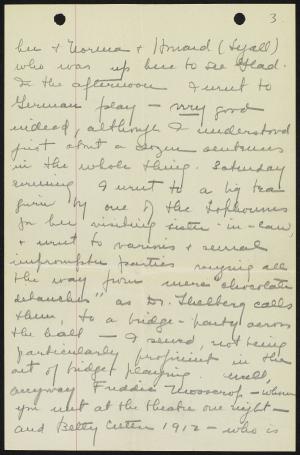 3.
her & Norma & Howard (Lyall)
who was up here to see Glad.
In the afternoon I went to
German play - very good
indeed, although I understood
just about a dozen sentences
in the whole thing. Saturday
evening I went to a big tea
given by one of the Sophomores
for her visiting sister-in-law,
& went to various & several
impromptu parties varying all
the way from mere "chocolate
debauches" as Dr. Thelberg calls
them, to a bridge-party across
the hall - I sewed, not being
particularly proficient in the
art of bridge playing. Well,
anyway Freddie Mosscrop - whom
you met at the theatre one night -
and Betty 1912 - who is